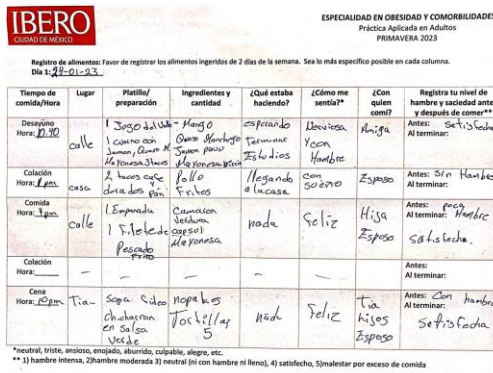 IBERO
CIUDAD DE MÉXICO
ESPECIALIDAD EN OBESIDAD Y COMORBILIDADES
Práctica Aplicada en Adultos
PRIMAVERA 2023
Registro de alimentos: Favor de registrar los alimentos ingeridos de 2 días de la semana. Sea lo más específico posible en cada columna.
Día 1: 24-01-23
Tiempo de comida/Hora
Lugar
Platillo/ preparación
Ingredientes y cantidad
¿Qué estaba haciendo?
¿Cómo me sentía?*
¿Con quien comí?
Registra tu nivel de hambre y saciedad antes y después de comer**
Desayuno
Hora:
calle
1 Jugo del Valle - Mango
1 cuerno con
Jamon, Queso M.
Mayonesa
Queso Manchego
Jamon pavo
Mayonesa
esperando
Terminar
Estudios
Nerviosa
Y con
Hambre
Amiga
Antes: Satisfecha
Al terminar:
Colación
Hora: 1 pm
casa
2 tacos cafe
dorados pan
Pollo
Fritos
llegando
a la casa
con
sueño
Esposo
Antes: Sin Hambre
Al terminar:
Comida
Hora: 4 pm
calle
1 Empanada
1 Filete de
Pescado
Frito
Camaron
Verdura
Mayonesa
nada
Feliz
Hija
Esposo
Antes: poca
Al terminar: Hambre
Satisfecha.
Colación
Hora:
–
–
–
–
–
–
Antes:
Al terminar:
Cena
Hora: 10pm
Tia
Sopa Fideo
chicharron
en salsa
Verde
nopales
Tortillas
5
nada
Feliz
Tia
hijos
Esposo
Antes: Con hambre
Al terminar:
Satisfecha
*neutral, triste, ansioso, enojado, aburrido, culpable, alegre, etc.
** 1) hambre intensa, 2)hambre moderada 3) neutral (ni con hambre ni lleno), 4) satisfecho, 5)malestar por exceso de comida